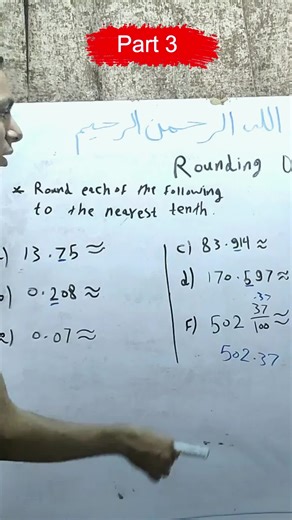 Part 3
الله الرحمن الرحيم
Rounding
* Round each of the following
to the nearest tenth.
) 13.75 ≈
c) 83.914 ≈
) 0.208 ≈
d) 170.597 ≈
e) 0.07 ≈
.37
F) 502 37/100 ≈
502.37